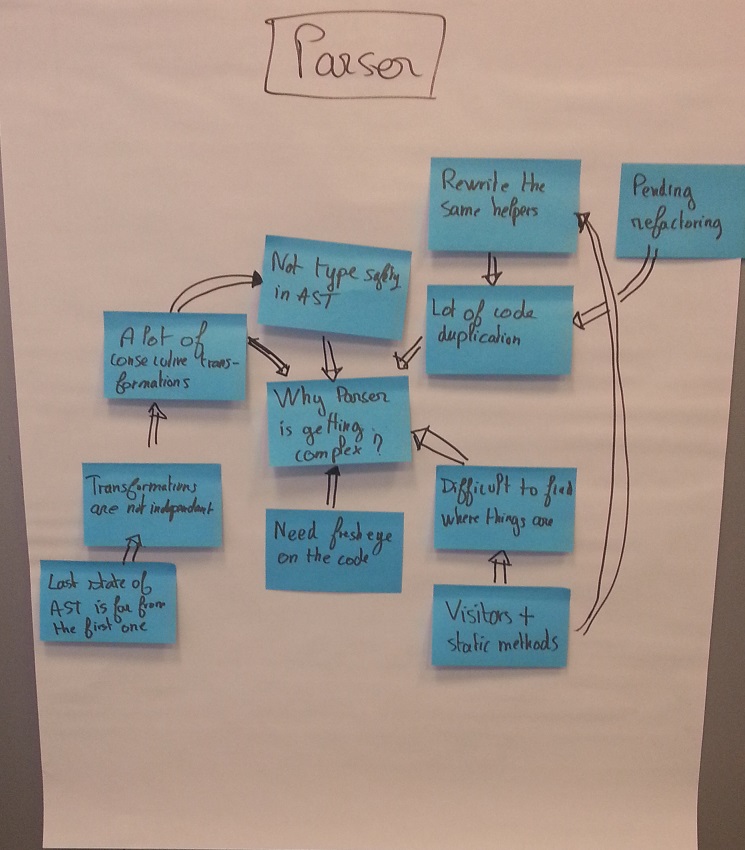 Parser
Rewrite the
same helpers
Pending
refactoring
Not type safety
in AST
Lot of code
duplication
A lot of
consecutive trans-
formations
Why Parser
is getting
complex ?
Transformations
are not independant
Difficult to find
where things are
Need fresh eye
on the code
Last state of
AST is far from
the first one
Visitors +
static methods